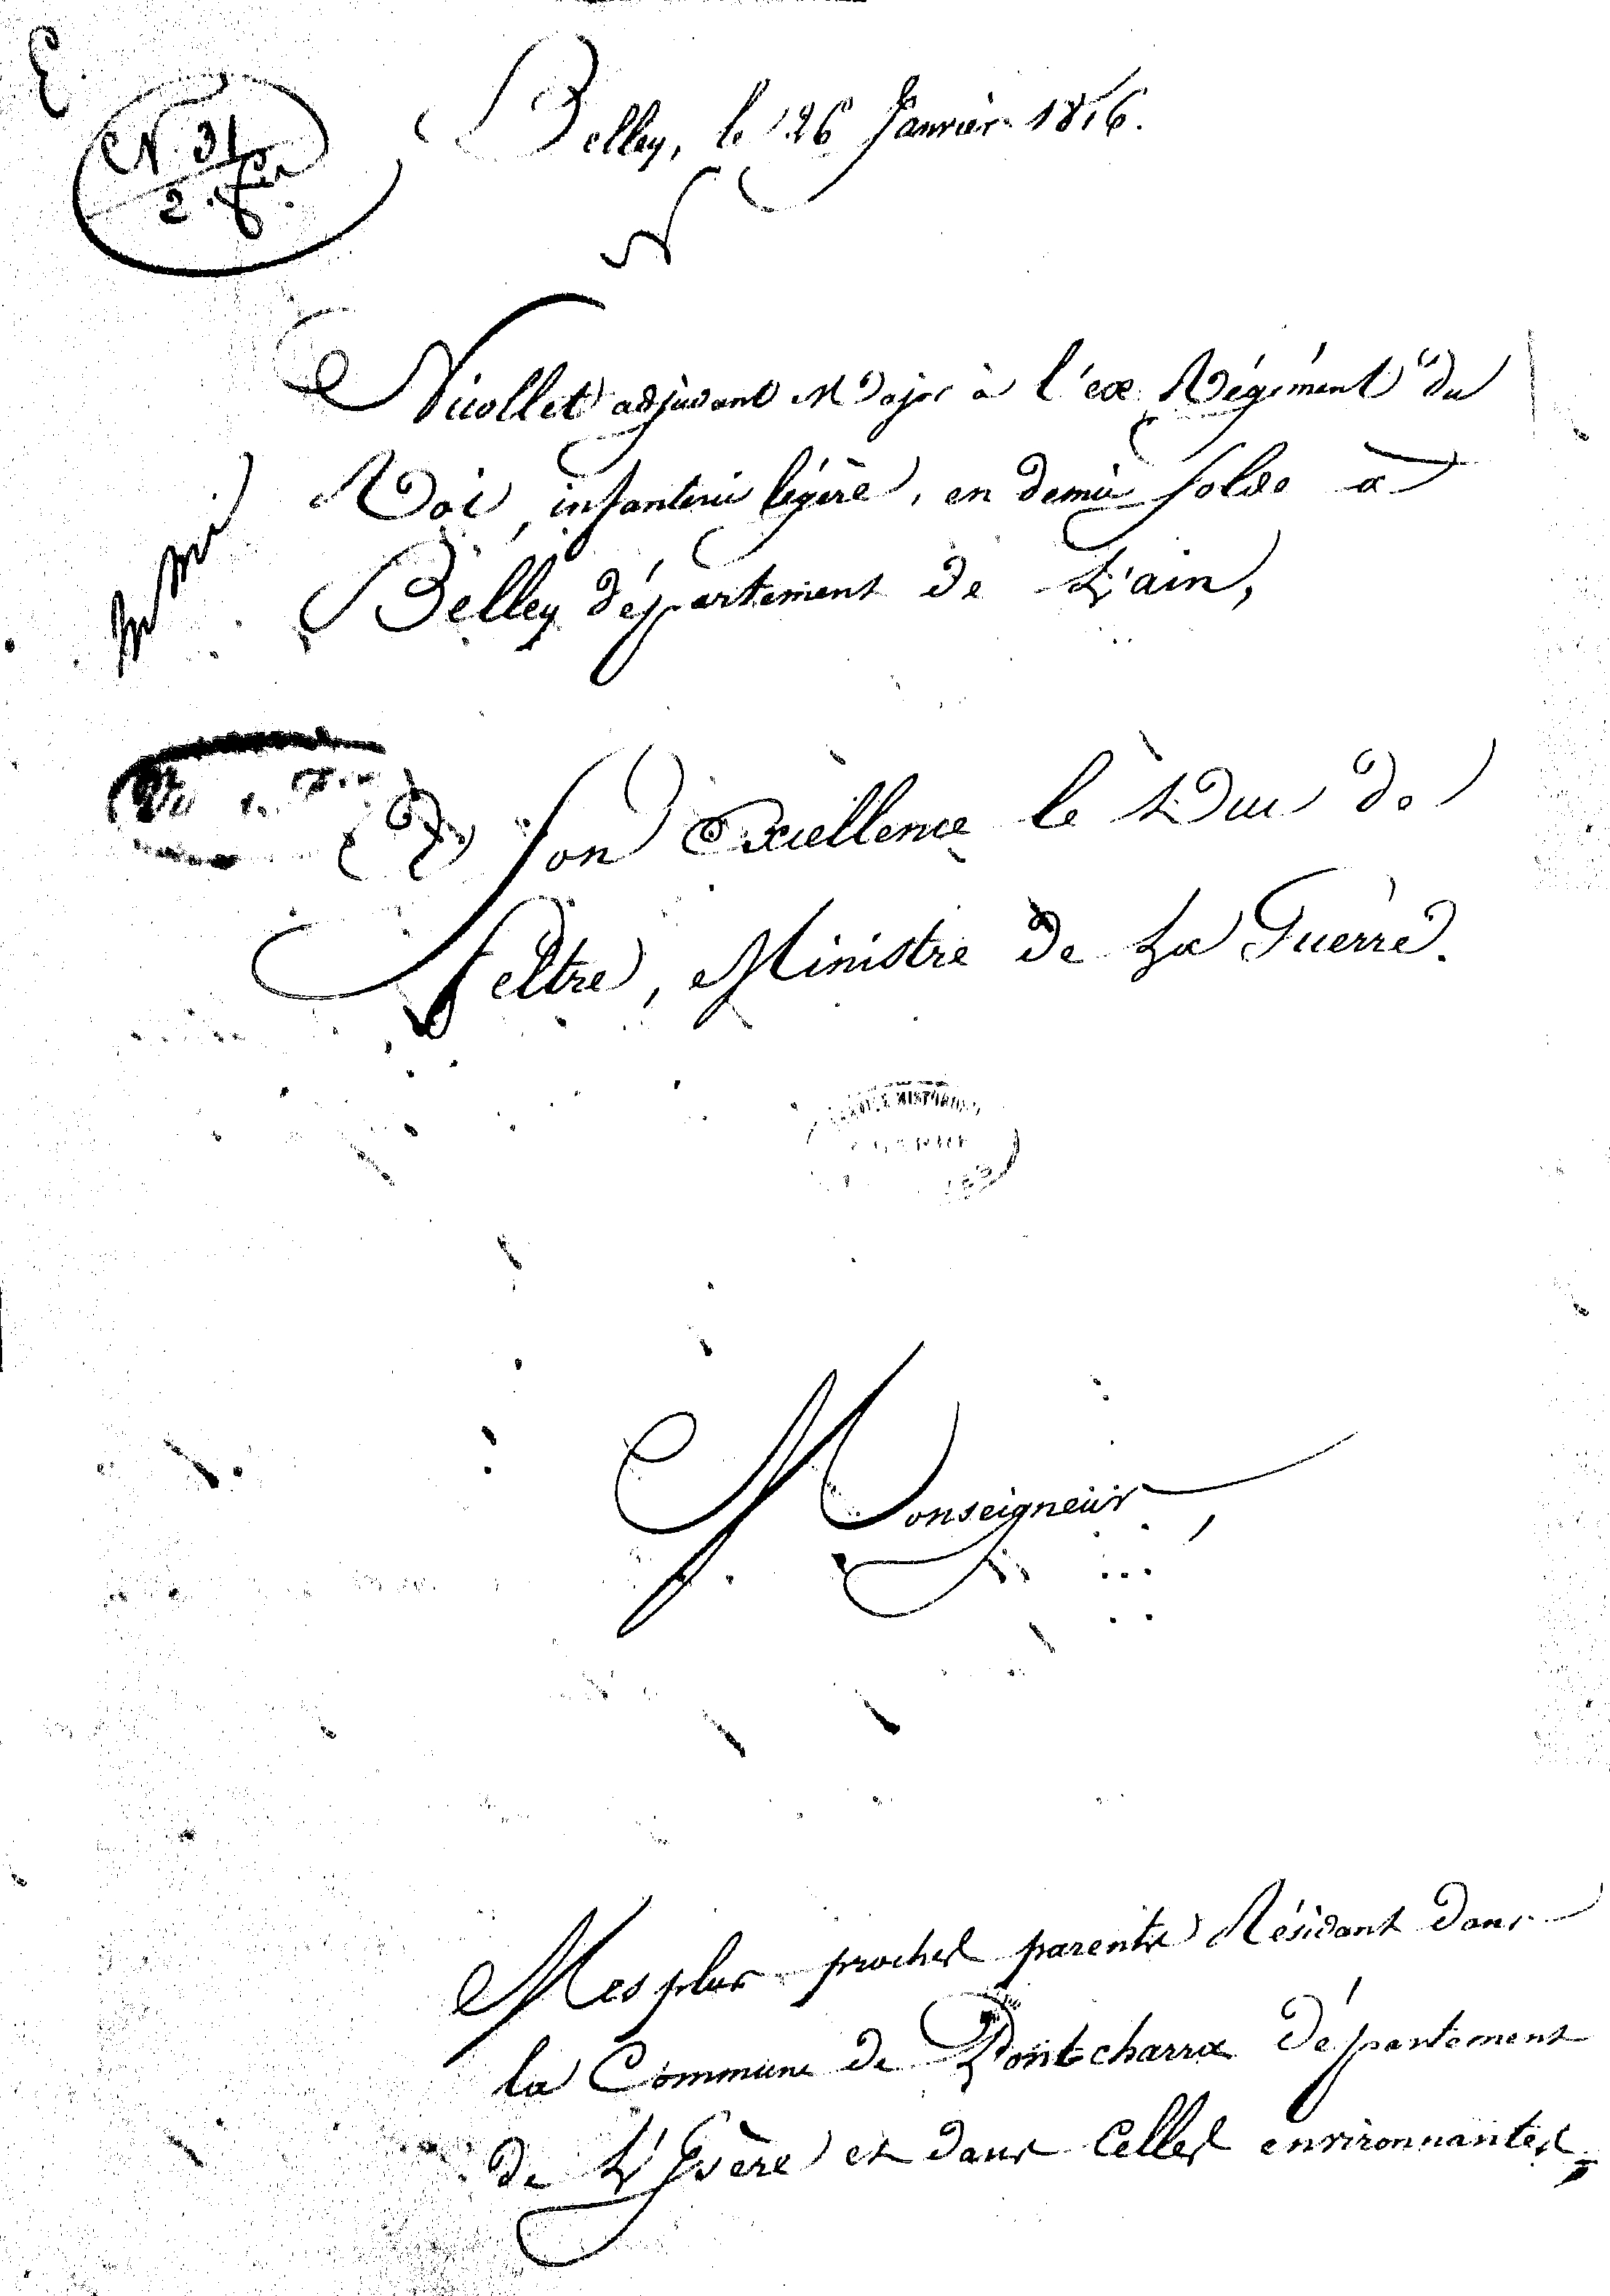 E
N. 31
2. fer
Belley, le 26 Janvier 1816.
Nicollet adjudant Major à l'ex Régiment du
Roi, infanterie légère, en demie solde à
Belley département de L'ain,
A Son Excellence le Duc de
Feltre, Ministre de La Guerre.
Monseigneur,
Mes plus proches parents Résidant dans
la Commune de Pontcharra département
de L'Isère et dans Celles environnantes,